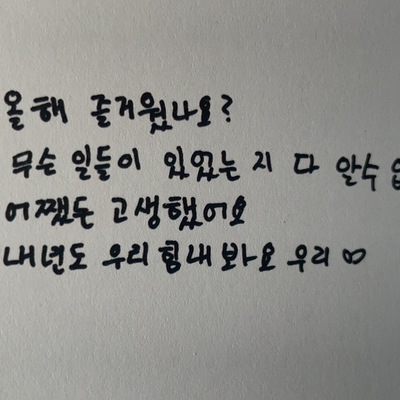 올해 즐거웠나요?
무슨 일들이 있었는지 다 알수
어쨌든 고생했어요
내년도 우리 힘내봐요 우리 ♡